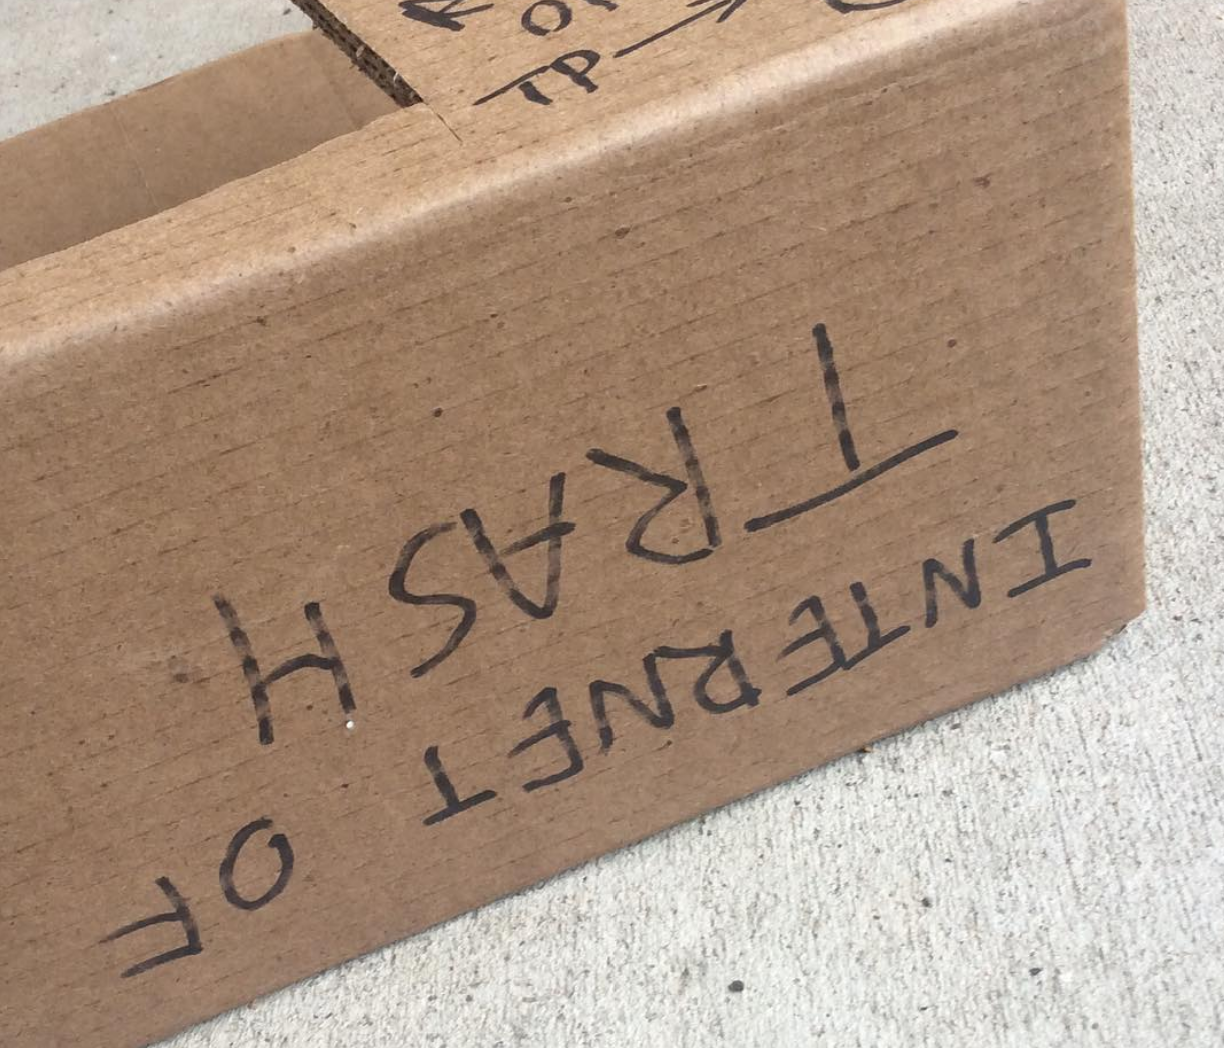 INTERNET OF
TRASH
TP →